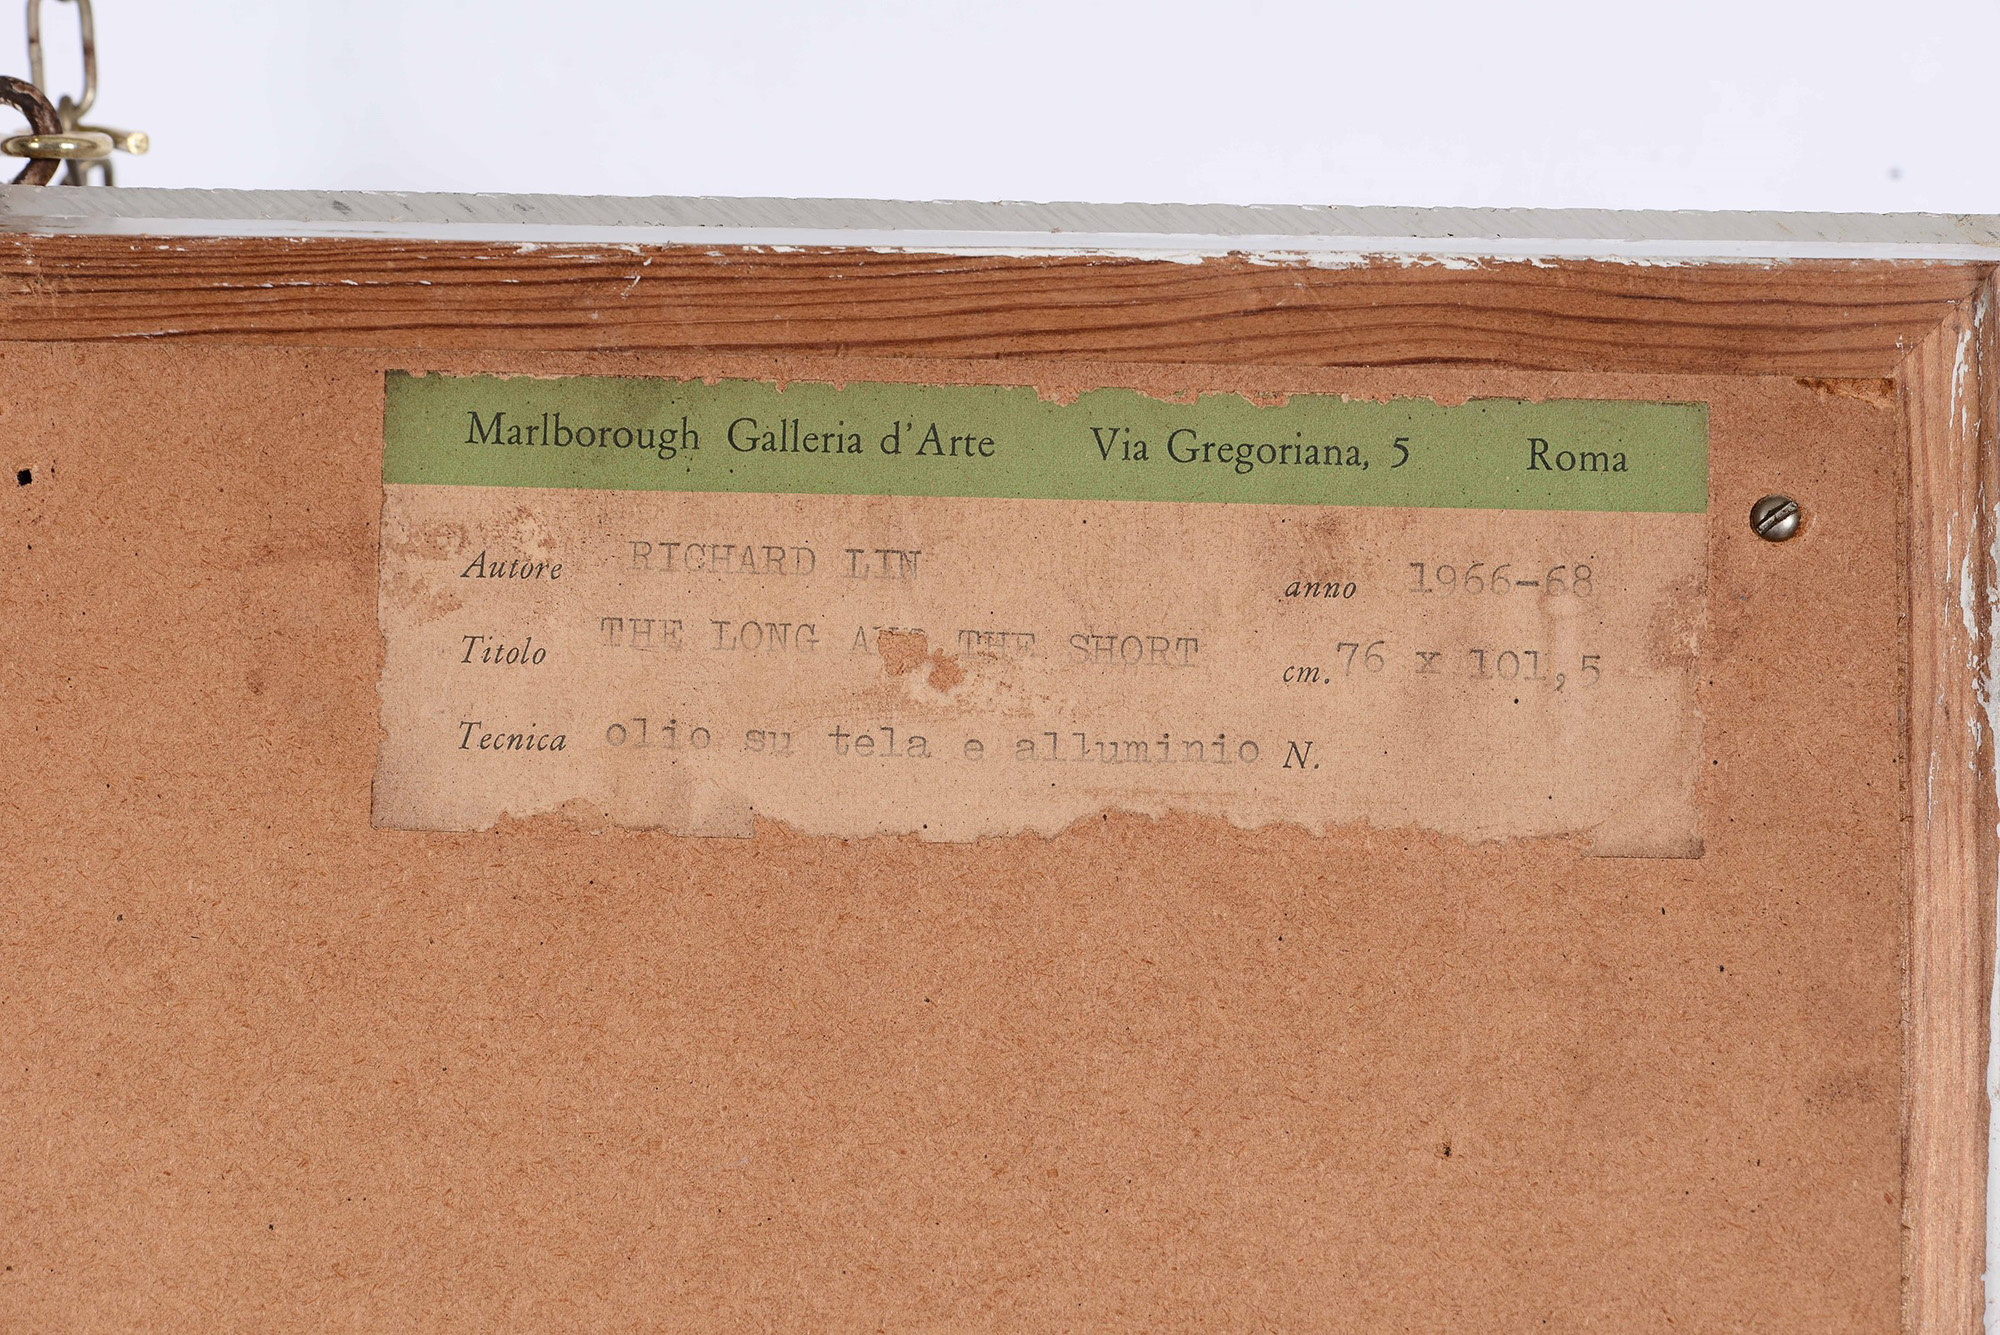 Marlborough Galleria d'Arte Via Gregoriana, 5 Roma
Autore RICHARD LIN anno 1966-68
Titolo THE LONG AND THE SHORT cm. 76 x 101,5
Tecnica olio su tela e alluminio N.